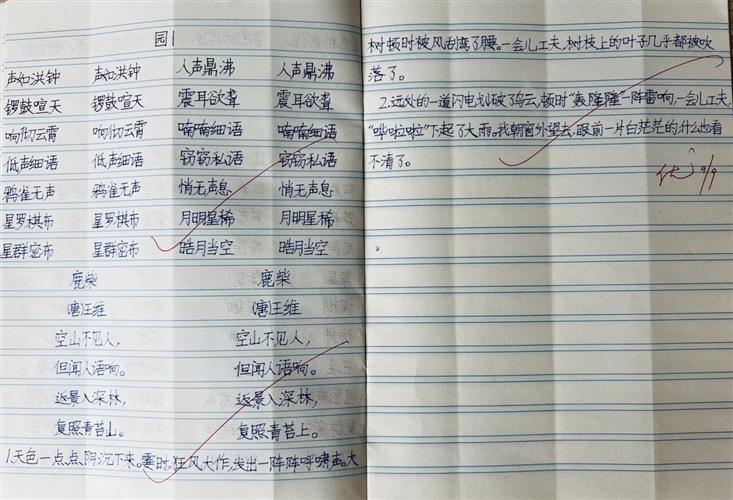 园1
声如洪钟 声如洪钟 人声鼎沸 人声鼎沸
锣鼓喧天 锣鼓喧天 震耳欲聋 震耳欲聋
响彻云霄 响彻云霄 喃喃细语 喃喃细语
低声细语 低声细语 窃窃私语 窃窃私语
鸦雀无声 鸦雀无声 悄无声息 悄无声息
星罗棋布 星罗棋布 月明星稀 月明星稀
星群密布 星群密布 皓月当空 皓月当空
鹿柴 鹿柴
(唐)王维 (唐)王维
空山不见人, 空山不见人,
但闻人语响。 但闻人语响。
返景入深林, 返景入深林,
复照青苔山。 复照青苔上。
1.天色一点点阴沉下来。霎时,狂风大作,发出一阵阵呼啸声。大
树顿时被风刮弯了腰。一会儿工夫,树枝上的叶子几乎都被吹
落了。
2.远处的一道闪电划破了乌云,顿时“轰隆隆”一阵雷响,一会儿工夫,
“哗啦啦”下起了大雨。我朝窗外望去,眼前一片白茫茫的,什么也看
不清了。
优